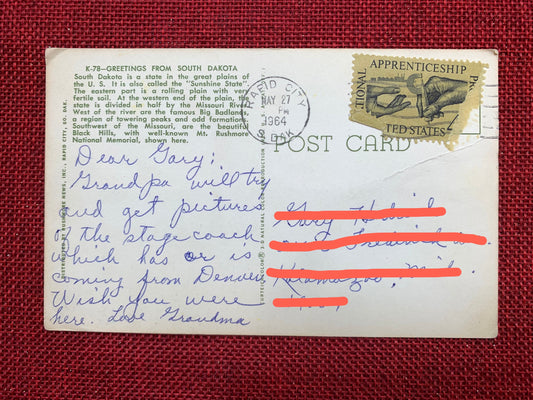 K-78—GREETINGS FROM SOUTH DAKOTA
South Dakota is a state in the great plains of
the U. S. It is also called the "Sunshine State".
The eastern part is a rolling plain with very
fertile soil. At the western end of the plain, the
state is divided in half by the Missouri River.
West of the river are the famous Big Badlands,
a region of towering peaks and odd formations.
Southwest of the Missouri, are the beautiful
Black Hills, with well-known Mt. Rushmore
National Memorial, shown here.
RAPID CITY
MAY 27
PM
1964
S. DAK.
TIONAL APPRENTICESHIP
TED STATES
POST CARD
Dear Gary:
Grandpa will try
and get pictures
of the stage coach
which has or is
coming from Denver
Wish you were
here. Love Grandma
DISTRIBUTED BY RUSHMORE NEWS, INC., RAPID CITY, SO. DAK.
Gary
Kalamazoo, Mich